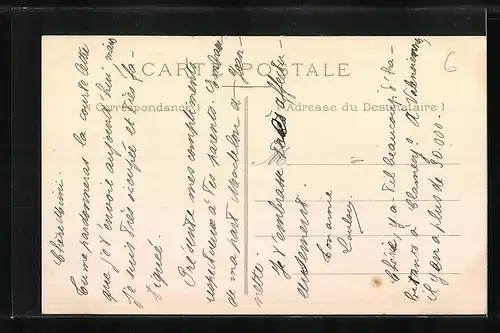 CARTE POSTALE
(Correspondance)
(Adresse du Destinataire)
6
Chère Mimi.
Tu me pardonneras la courte lettre
que je t'envoie aujourd'hui, mais
je suis très occupée et très fa-
tiguée.
Présente mes compliments
respectueux à tes parents. Embrasse
de ma part Madelon et Jean-
nette.
Je t'embrasse affectu-
eusement.
Ton amie
Chérie, y a-t-il beaucoup d'ha-
bitants à Clamecy? A Valenciennes
il y en a plus de 30.000.